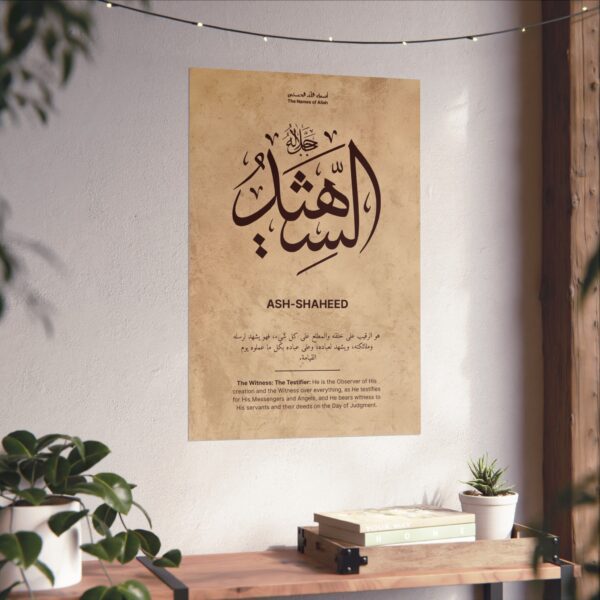 أسماء الله الحسنى
The Names of Allah
جل جلاله
الشهيد
ASH-SHAHEED
هو الرقيب على خلقه والمطلع على كل شيء، فهو يشهد لرسله
وملائكته، ويشهد لعباده وعلى عباده بكل ما عملوه يوم
القيامة.
The Witness: The Testifier: He is the Observer of His
creation and the Witness over everything, as He testifies
for His Messengers and Angels, and He bears witness to
His servants and their deeds on the Day of Judgment.
HOME